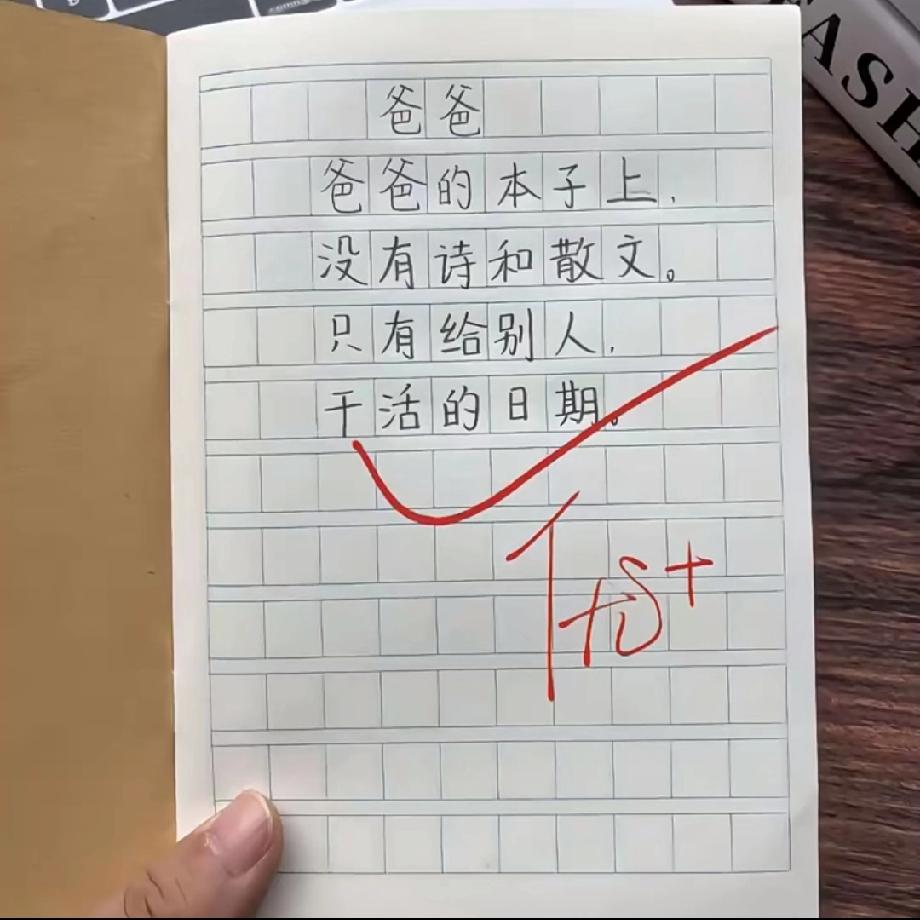 爸爸
爸爸的本子上,
没有诗和散文。
只有给别人,
干活的日期。
ASH